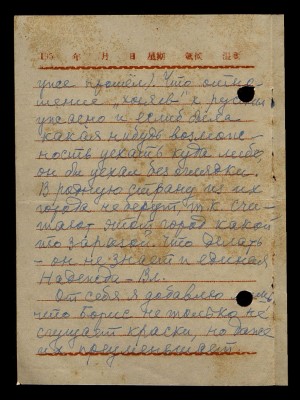 195 年 月 日 星期 氣候 溫度
уже прошёл). Что отно-
шение „хозяев" к русским
ужасно и если б была
какая нибудь возмож-
ность уехать куда либо,
он бы уехал без оглядки.
В родную страну из их
города не берут, т.к. счи-
тают этот город какой
то заразой. Что делать
– он не знает и единая
Надежда – Вл.
От себя я добавлю
что Борис не только не
сгущает краски, но даже
их преуменьшает